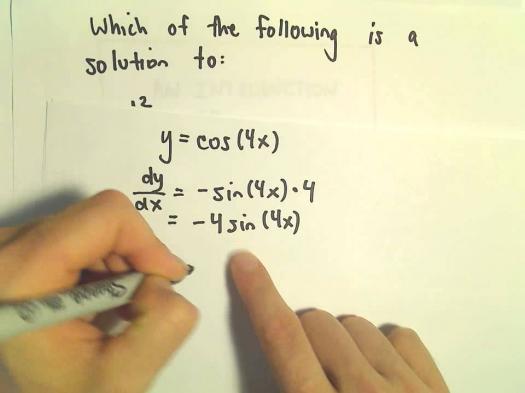 Which of the following is a
solution to:
.2
y = cos(4x)
dy/dx = -sin(4x)·4
= -4sin(4x)